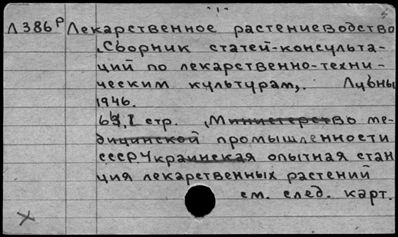 Л386р Лекарственное растениеводство
.Сборник статей-консульта-
ций по лекарственно-техни-
ческим культурам,. Лубны
1946.
стр. .Министерство ме-
дицинской промышленности
СССР Украинская опытная стан
ция лекарственных растений
см. след. карт.